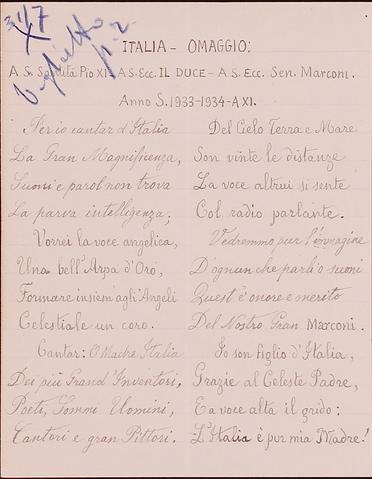 31/7
Biglietto
p. 2
ITALIA - OMAGGIO:
A S. Santità Pio XI - A S. Ecc. IL DUCE - A S. Ecc. Sen. Marconi.
Anno S. 1933-1934-A XI.
Per io cantar d'Italia
La Gran Magnificenza,
Suoni e parol non trova
La parva intelligenza;
Vorrei la voce angelica,
Una bell'Arpa d'Oro,
Formare insiem' agli Angeli
Celestiale un coro.
Cantar: O Madre Italia
Dei più Grand'Inventori,
Poeti, Sommi Uomini,
Cantori e gran Pittori.
Del Cielo Terra e Mare
Son vinte le distanze
La voce altrui si sente
Col radio parlante.
Vedremmo pur l'immagine
D'ognun che parli o suoni
Quest'è onore e merito
Del Nostro Gran Marconi.
Io son figlio d'Italia,
Grazie al Celeste Padre,
E a voce alta il grido:
L'Italia è pur mia Madre!